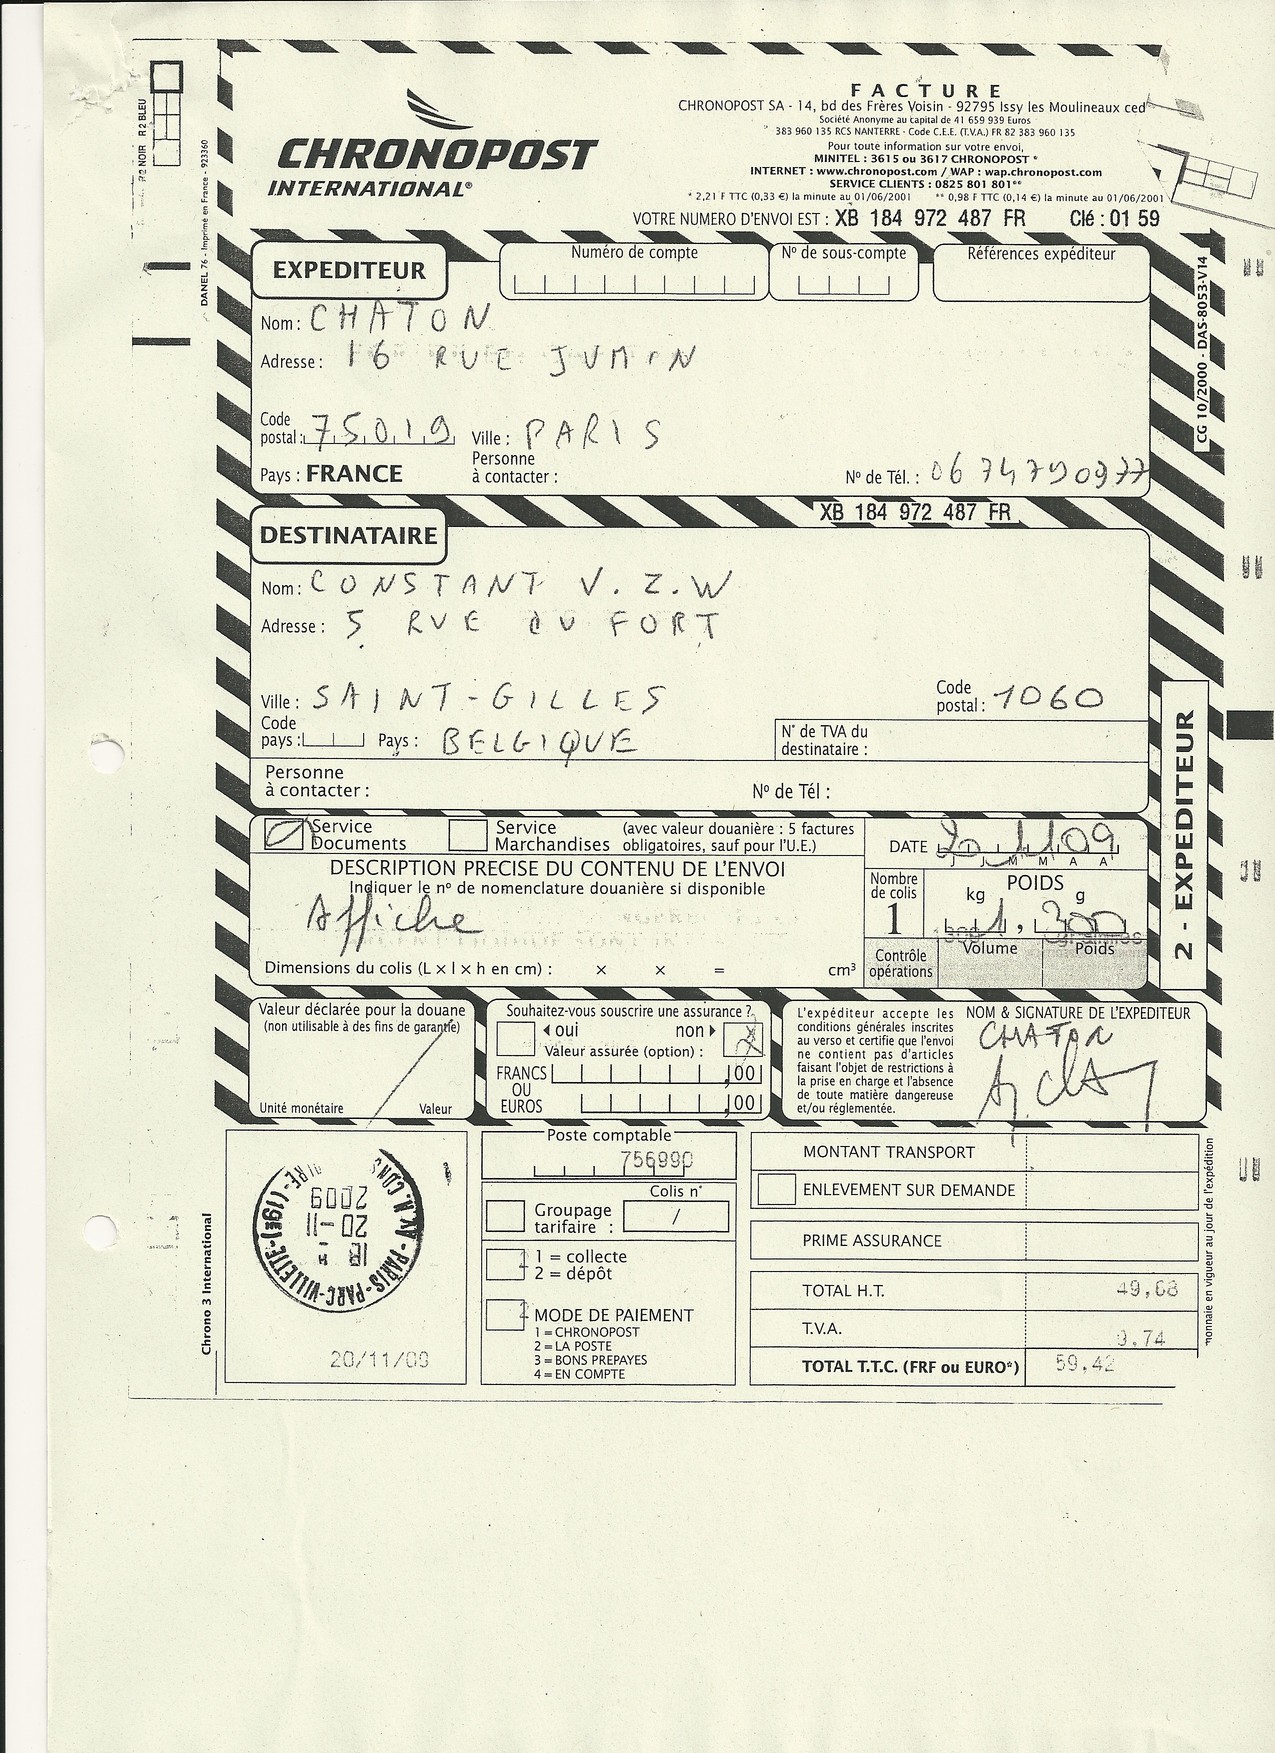 FACTURE
CHRONOPOST SA - 14, bd des Frères Voisin - 92795 Issy les Moulineaux ced
Société Anonyme au capital de 41 659 939 Euros
383 960 135 RCS NANTERRE - Code C.E.E. (T.V.A.) FR 82 383 960 135
Pour toute information sur votre envoi,
MINITEL : 3615 ou 3617 CHRONOPOST *
INTERNET : www.chronopost.com / WAP : wap.chronopost.com
SERVICE CLIENTS : 0825 801 801**
* 2,21 F TTC (0,33 €) la minute au 01/06/2001 ** 0,98 F TTC (0,14 €) la minute au 01/06/2001
CHRONOPOST
INTERNATIONAL®
R2 NOIR R2 BLEU
DANEL 76 - Imprimé en France - 923360
VOTRE NUMERO D'ENVOI EST : XB 184 972 487 FR Clé : 01 59
EXPEDITEUR
Numéro de compte
N° de sous-compte
Références expéditeur
Nom : CHATON
Adresse : 16 RUE JUMIN
Code postal : 75019 Ville : PARIS
Pays : FRANCE
Personne à contacter :
N° de Tél. : 0674790977
CG 10/2000 - DAS-8053-V14
XB 184 972 487 FR
DESTINATAIRE
Nom : CONSTANT V.Z.W
Adresse : 5 RUE DU FORT
Ville : SAINT-GILLES
Code postal : 1060
Code pays : Pays : BELGIQUE
N° de TVA du destinataire :
Personne à contacter :
N° de Tél :
2 - EXPEDITEUR
Service Documents
Service Marchandises
(avec valeur douanière : 5 factures obligatoires, sauf pour l'U.E.)
DATE 20 11 09
J J M M A A
DESCRIPTION PRECISE DU CONTENU DE L'ENVOI
Indiquer le n° de nomenclature douanière si disponible
Affiche
Dimensions du colis (L x l x h en cm) : x x = cm³
Nombre de colis
1
POIDS
kg g
1, 300
Contrôle opérations
Volume
Poids
Valeur déclarée pour la douane
(non utilisable à des fins de garantie)
Unité monétaire Valeur
Souhaitez-vous souscrire une assurance ?
oui non
Valeur assurée (option) :
FRANCS ,00
OU
EUROS ,00
L'expéditeur accepte les
conditions générales inscrites
au verso et certifie que l'envoi
ne contient pas d'articles
faisant l'objet de restrictions à
la prise en charge et l'absence
de toute matière dangereuse
et/ou réglementée.
NOM & SIGNATURE DE L'EXPEDITEUR
CHATON
PARIS-PARC-VILLETTE-(19E)
20-11
2009
20/11/09
Chrono 3 International
Poste comptable
756990
Groupage tarifaire :
Colis n°
/
1 = collecte
2 = dépôt
MODE DE PAIEMENT
1 = CHRONOPOST
2 = LA POSTE
3 = BONS PREPAYES
4 = EN COMPTE
MONTANT TRANSPORT
ENLEVEMENT SUR DEMANDE
PRIME ASSURANCE
TOTAL H.T. 49,68
T.V.A. 9,74
TOTAL T.T.C. (FRF ou EURO*) 59,42
monnaie en vigueur au jour de l'expédition